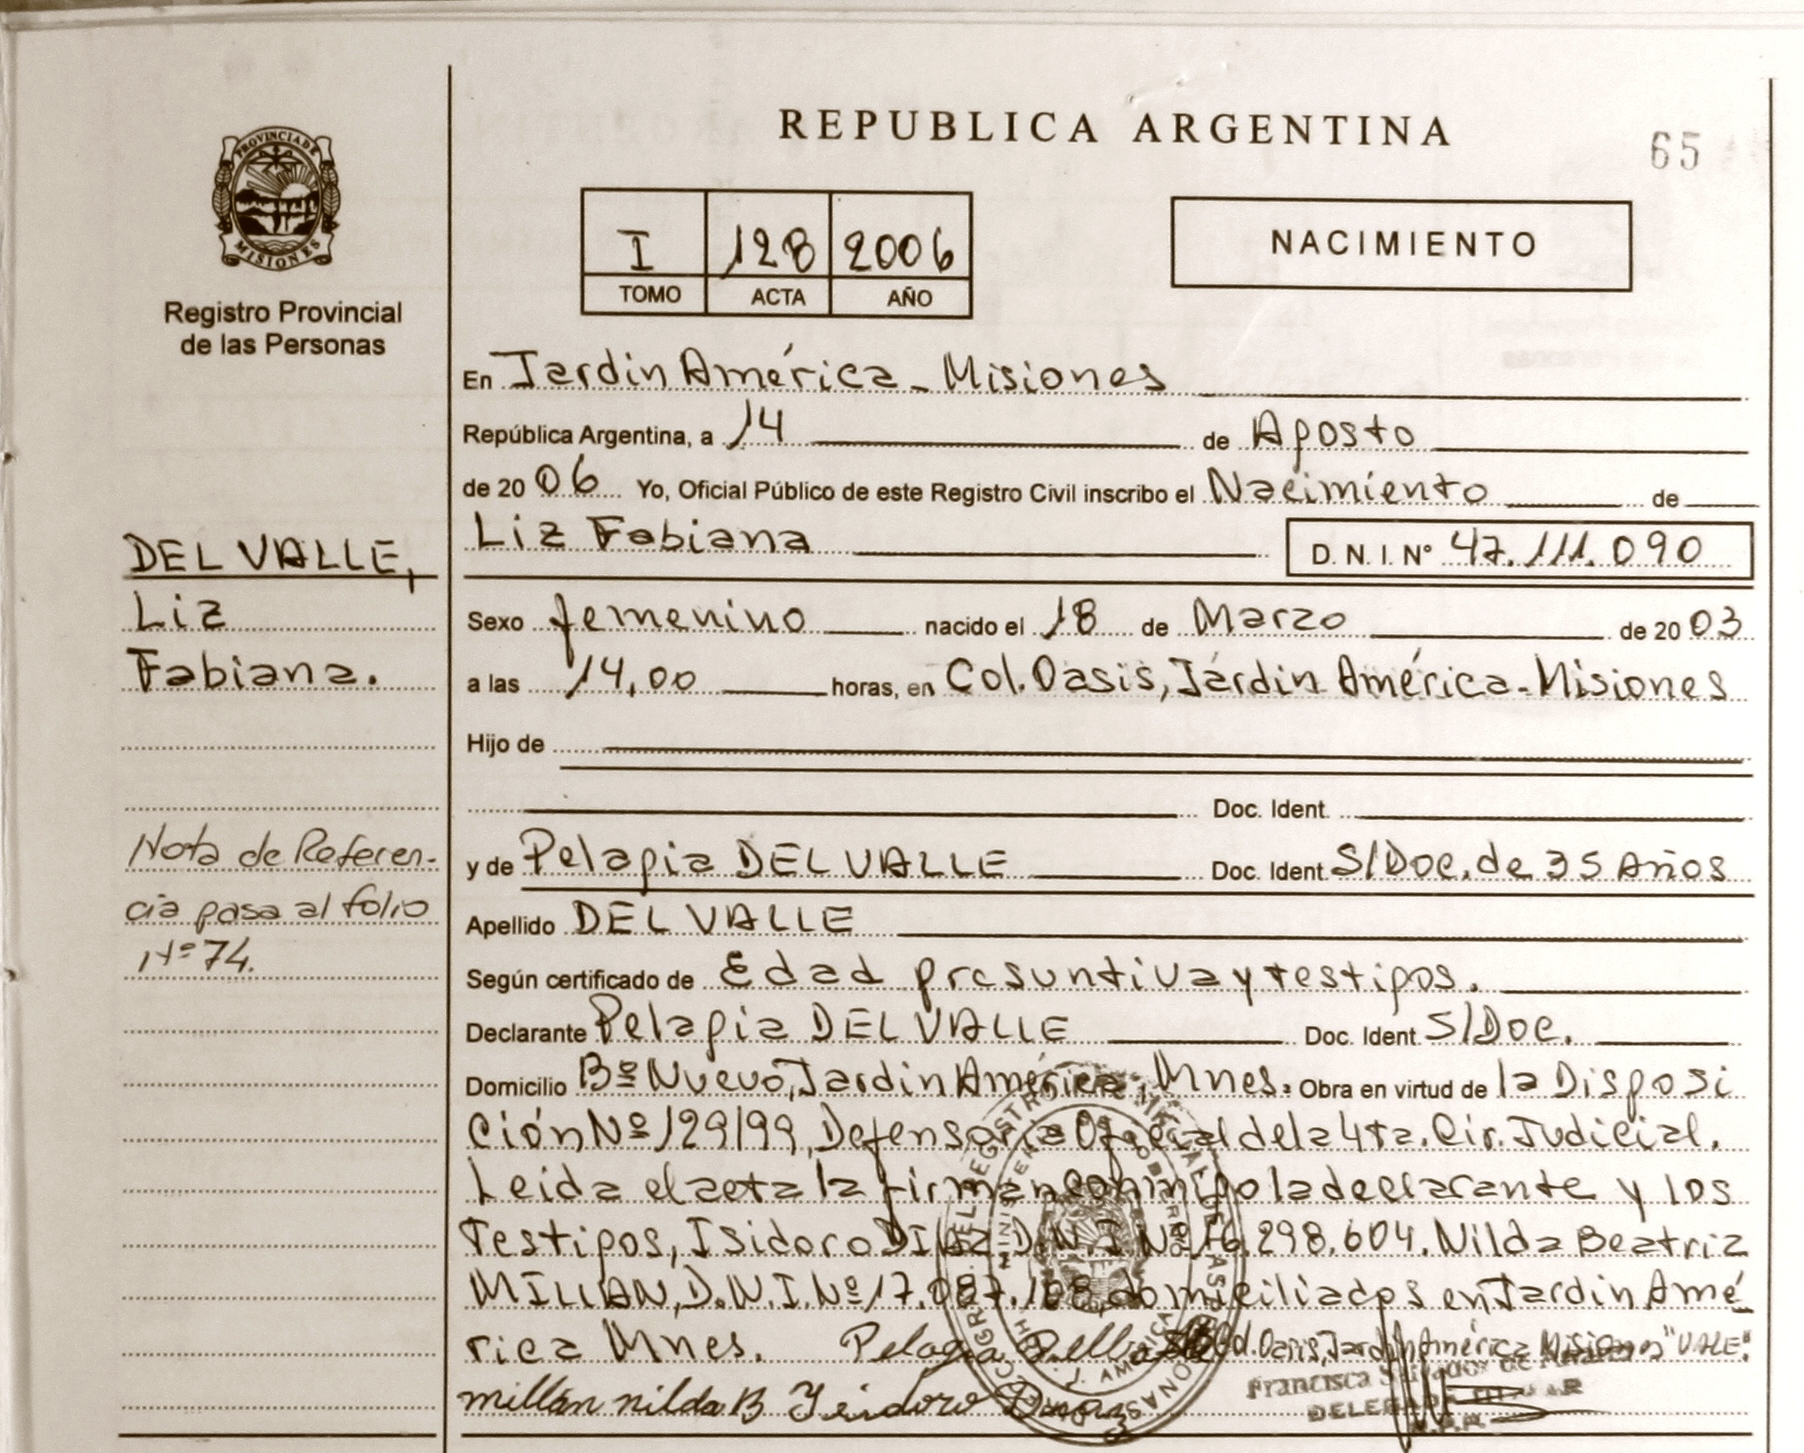 REPUBLICA ARGENTINA
65
PROVINCIA DE
MISIONES
Registro Provincial
de las Personas
I 128 2006
TOMO ACTA AÑO
NACIMIENTO
En Jardin América - Misiones
República Argentina, a 14 de Agosto
de 20 06 Yo, Oficial Público de este Registro Civil inscribo el Nacimiento de
Liz Fabiana D. N. I. Nº 47.111.090
DEL VALLE,
Liz
Fabiana.
Sexo femenino nacido el 18 de Marzo de 20 03
a las 14,00 horas, en Col. Oasis, Jardin América - Misiones
Hijo de
Doc. Ident.
y de Pelagia DEL VALLE Doc. Ident. S/Doc. de 35 Años
Nota de Referen-
cia pasa al folio
Nº 74.
Apellido DEL VALLE
Según certificado de Edad presuntiva y testigos.
Declarante Pelagia DEL VALLE Doc. Ident. S/Doc.
Domicilio Bº Nuevo, Jardin América, Mnes. Obra en virtud de la Disposi
ción Nº 129/99, Defensoria Oficial de la 4ta. Cir. Judicial.
Leida el acta la firman conmigo la declarante y los
Testigos, Isidoro DIAZ D.N.I. Nº 16.298.604. Nilda Beatriz
MILLAN, D.N.I. Nº 17.087.188, domiciliados en Jardin Amé
rica Mnes. Pelagia Col. Oasis, Jardin América Misiones "VALE".
millan nilda B Isidoro Diaz
Francisca